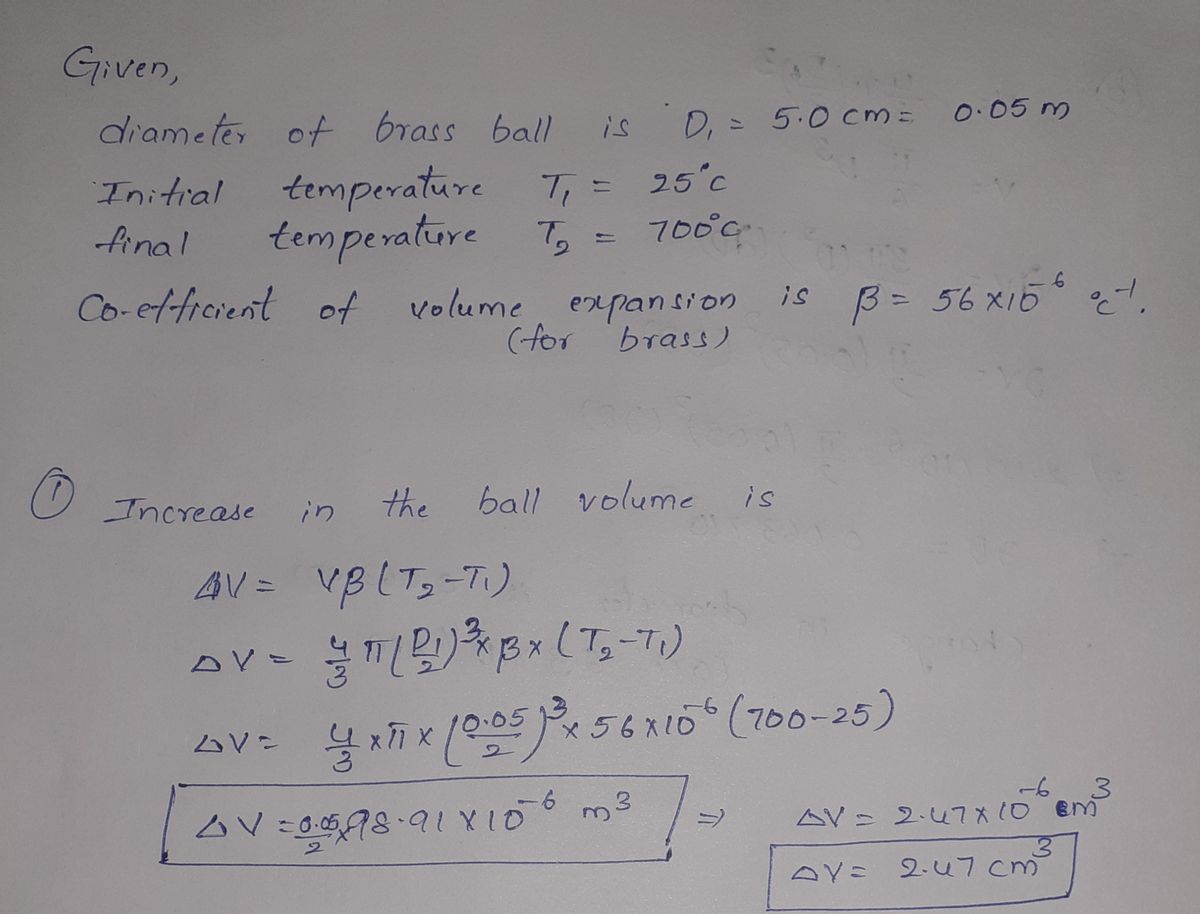 Given,
diameter of brass ball is D₁ = 5.0 cm = 0.05 m
Initial temperature T₁ = 25°C
final temperature T₂ = 700°C
Co-efficient of volume expansion is β = 56 × 10⁻⁶ °C⁻¹.
(for brass)
① Increase in the ball volume is
ΔV = Vβ (T₂-T₁)
ΔV = 4/3 π (D₁/2)³ × β × (T₂-T₁)
ΔV = 4/3 × π × (0.05/2)³ × 56 × 10⁻⁶ (700-25)
ΔV = 0.05/2 × 98.91 × 10⁻⁶ m³ ⇒ ΔV = 2.47 × 10⁻⁶ m³
ΔV = 2.47 cm³